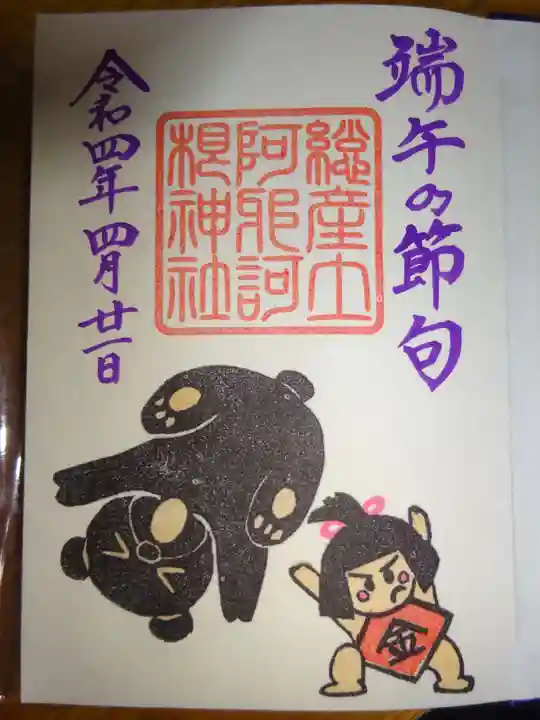 端午の節句
総産土
阿邪訶
根神社
令和四年四月廿一日
金